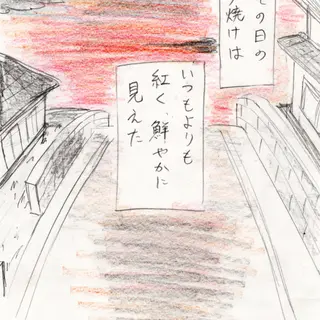 その日の
焼けは
いつもよりも
紅く、鮮やかに
見えた